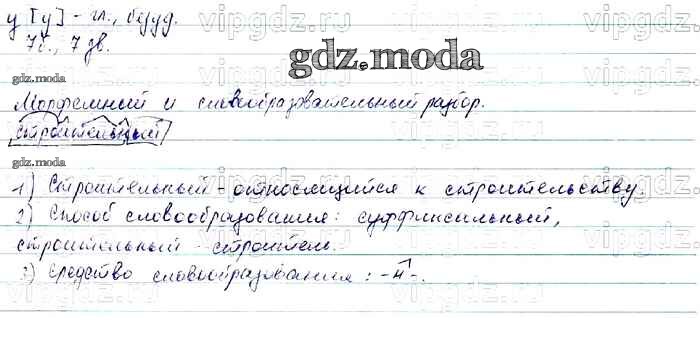 у [у] - гл., безуд.
7б., 7 зв.
gdz.moda
gdz.moda
Морфемный и словообразовательный разбор.
строительный
gdz.moda
1) Строительный - относящийся к строительству.
2) Способ словообразования: суффиксальный,
строительный - строитель.
3) Средство словообразования: -н-.
vipgdz.vipgdz.vipgdz.vip